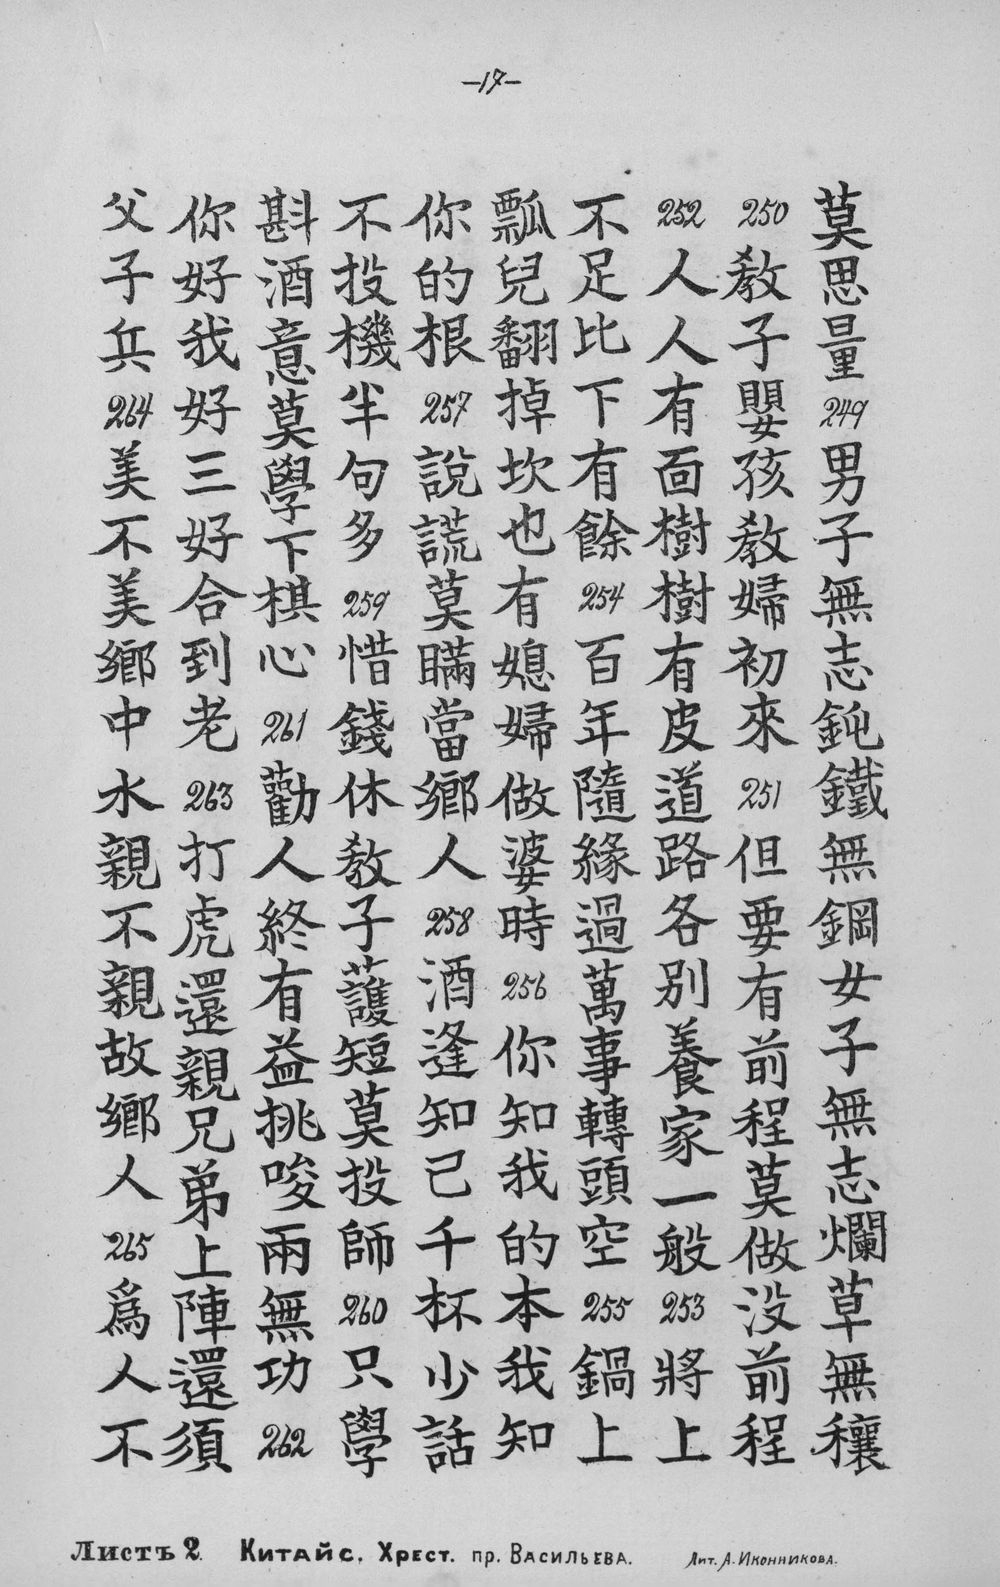 —17—
莫思量249男子無志鈍鐵無鋼女子無志爛草無穰
250教子嬰孩教婦初來251但要有前程莫做没前程
252人人有面樹樹有皮道路各別養家一般253將上
不足比下有餘254百年隨緣過萬事轉頭空255鍋上
瓢兒翻掉坎也有媳婦做婆時256你知我的本我知
你的根257說謊莫瞞當鄉人258酒逢知己千杯少話
不投機半句多259惜錢休教子護短莫投師260只學
斟酒意莫學下棋心261勸人終有益挑唆兩無功262
你好我好三好合到老263打虎還親兄弟上陣還須
父子兵264美不美鄉中水親不親故鄉人265爲人不
Листъ 2. Китайс. Хрест. пр. Васильева. Лит. А. Иконникова.